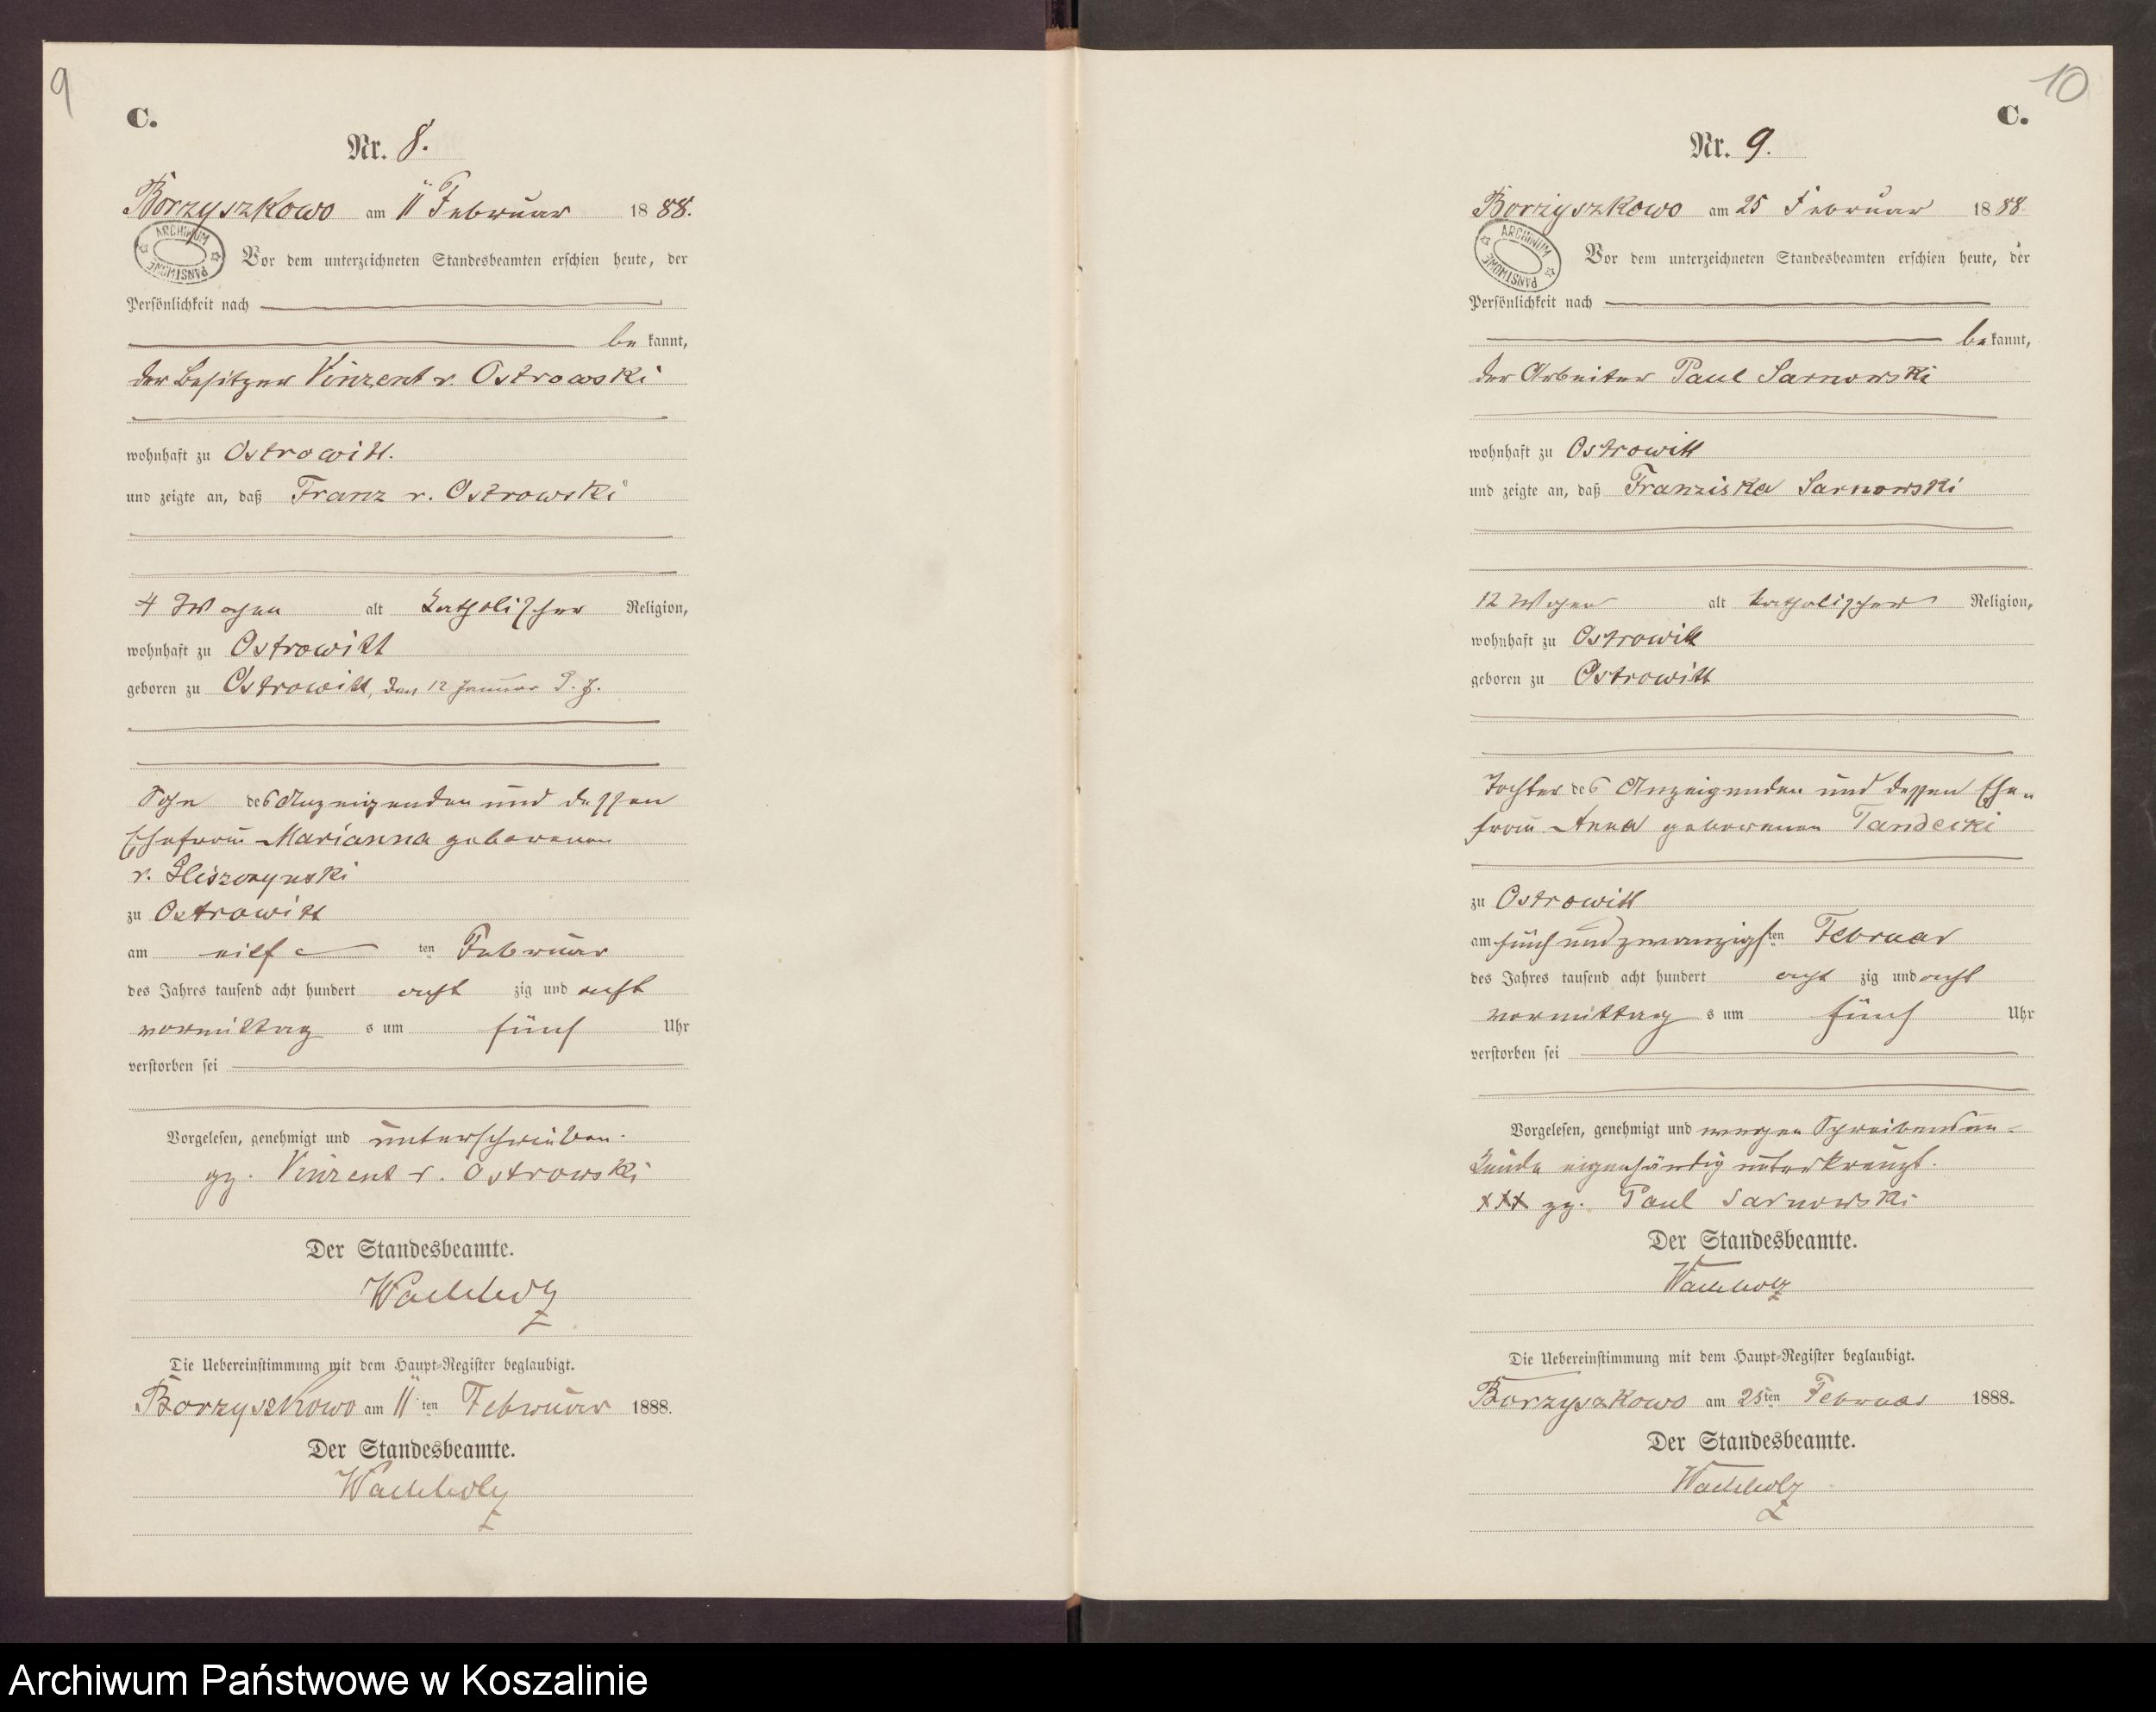 9
C.
Nr. 8.
Borzyszkowo am 11 Februar 1888.
ARCHIWUM PAŃSTWOWE
Vor dem unterzeichneten Standesbeamten erschien heute, der
Persönlichkeit nach
be kannt,
der Besitzer Vinzent v. Ostrowski
wohnhaft zu Ostrowitt.
und zeigte an, daß Franz v. Ostrowski
4 Wochen alt katholischer Religion,
wohnhaft zu Ostrowitt
geboren zu Ostrowitt, den 12 Januar d. J.
Sohn des Anzeigenden und dessen
Ehefrau Marianna geborenen
v.
zu Ostrowitt
am eilf ten Februar
des Jahres tausend acht hundert acht zig und acht
vormittag s um fünf Uhr
verstorben sei
Vorgelesen, genehmigt und unterschrieben.
gz. Vinzent v. Ostrowski
Der Standesbeamte.
Wachholz
Die Uebereinstimmung mit dem Haupt-Register beglaubigt.
Borzyszkowo am 11 ten Februar 1888.
Der Standesbeamte.
Wachholz
10
C.
Nr. 9.
Borzyszkowo am 25 Februar 1888.
ARCHIWUM PAŃSTWOWE
Vor dem unterzeichneten Standesbeamten erschien heute, der
Persönlichkeit nach
be kannt,
der Arbeiter Paul Sarnowski
wohnhaft zu Ostrowitt
und zeigte an, daß Franziska Sarnowski
12 Wochen alt katholischer Religion,
wohnhaft zu Ostrowitt
geboren zu Ostrowitt
Tochter des Anzeigenden und dessen Ehe-
frau Anna geborenen Tandecki
zu Ostrowitt
am fünfundzwanzigsten Februar
des Jahres tausend acht hundert acht zig und acht
vormittag s um fünf Uhr
verstorben sei
Vorgelesen, genehmigt und wegen Schreibensun-
kunde eigenhändig unterkreuzt.
XXX gz. Paul Sarnowski
Der Standesbeamte.
Wachholz
Die Uebereinstimmung mit dem Haupt-Register beglaubigt.
Borzyszkowo am 25ten Februar 1888.
Der Standesbeamte.
Wachholz
Archiwum Państwowe w Koszalinie